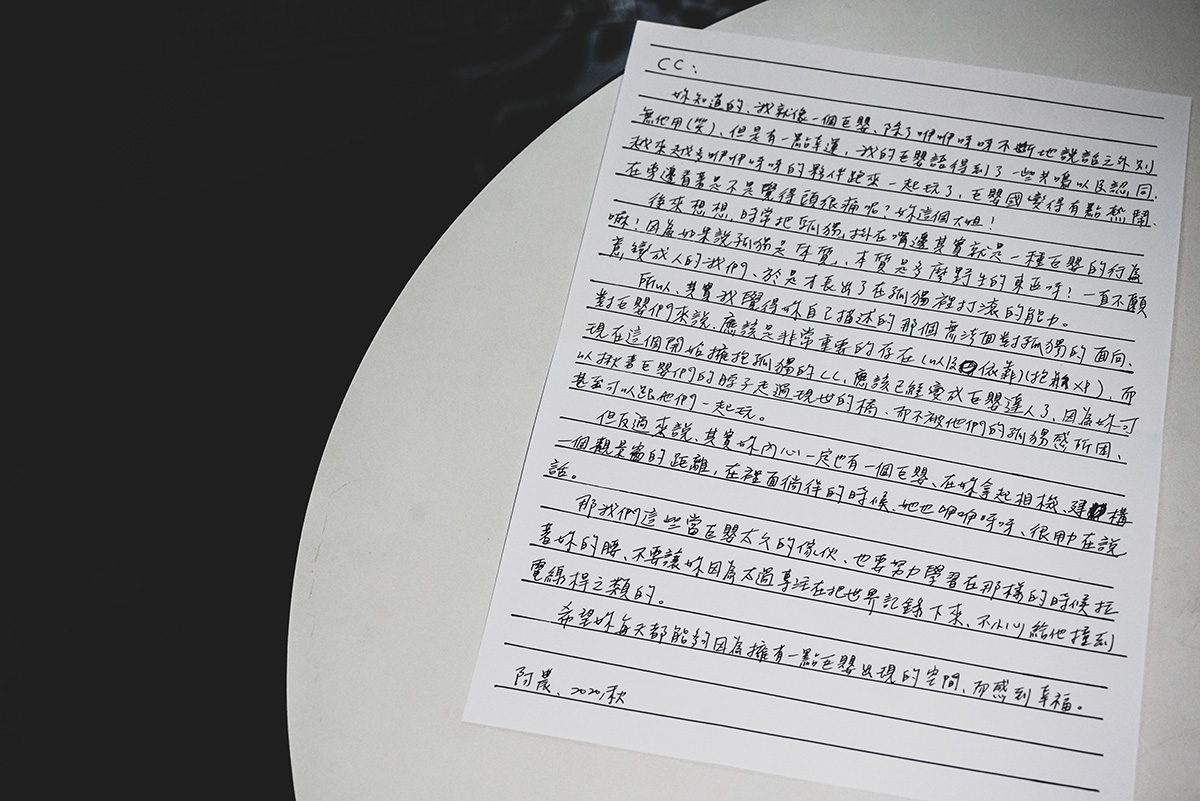 CC：
妳知道的、我就像一個巨嬰、除了咿咿呀呀不斷地說話之外別
無他用(笑)、但是有一點幸運，我的巨嬰語得到了一些共鳴以及認同、
越來越多咿咿呀呀的夥伴跑來一起玩了，巨嬰國變得有點熱鬧、
在旁邊看著是不是覺得頭很痛呢？妳這個大姐！
後來想想，時常把孤獨掛在嘴邊其實就是一種巨嬰的行為
嘛！因為如果說孤獨是本質、本質是多麼野生的東西呀！一直不願
意變成人的我們、於是才長出了在孤獨裡打滾的能力。
所以、其實我覺得妳自己描述的那個無法面對孤獨的面向、
對巨嬰們來說、應該是非常重要的存在(以及依靠)(抱歉XP)，而
現在這個開始擁抱孤獨的CC，應該已經變成巨嬰達人了，因為妳可
以揪著巨嬰們的脖子走過現世的橋、而不被他們的孤獨感所困、
甚至可以跟他們一起玩。
但反過來說、其實妳內心一定也有一個巨嬰、在妳拿起相機、建構
一個觀景窗的距離，在裡面徜徉的時候、她也咿咿呀呀、很用力在說
話。
那我們這些當巨嬰太久的傢伙、也要努力學習在那樣的時候拉
著妳的腰、不要讓妳因為太過專注在把世界記錄下來、不小心給他撞到
電線桿之類的。
希望妳每天都能夠因為擁有一點巨嬰出現的空間、而感到幸福。
阿農、2020,秋